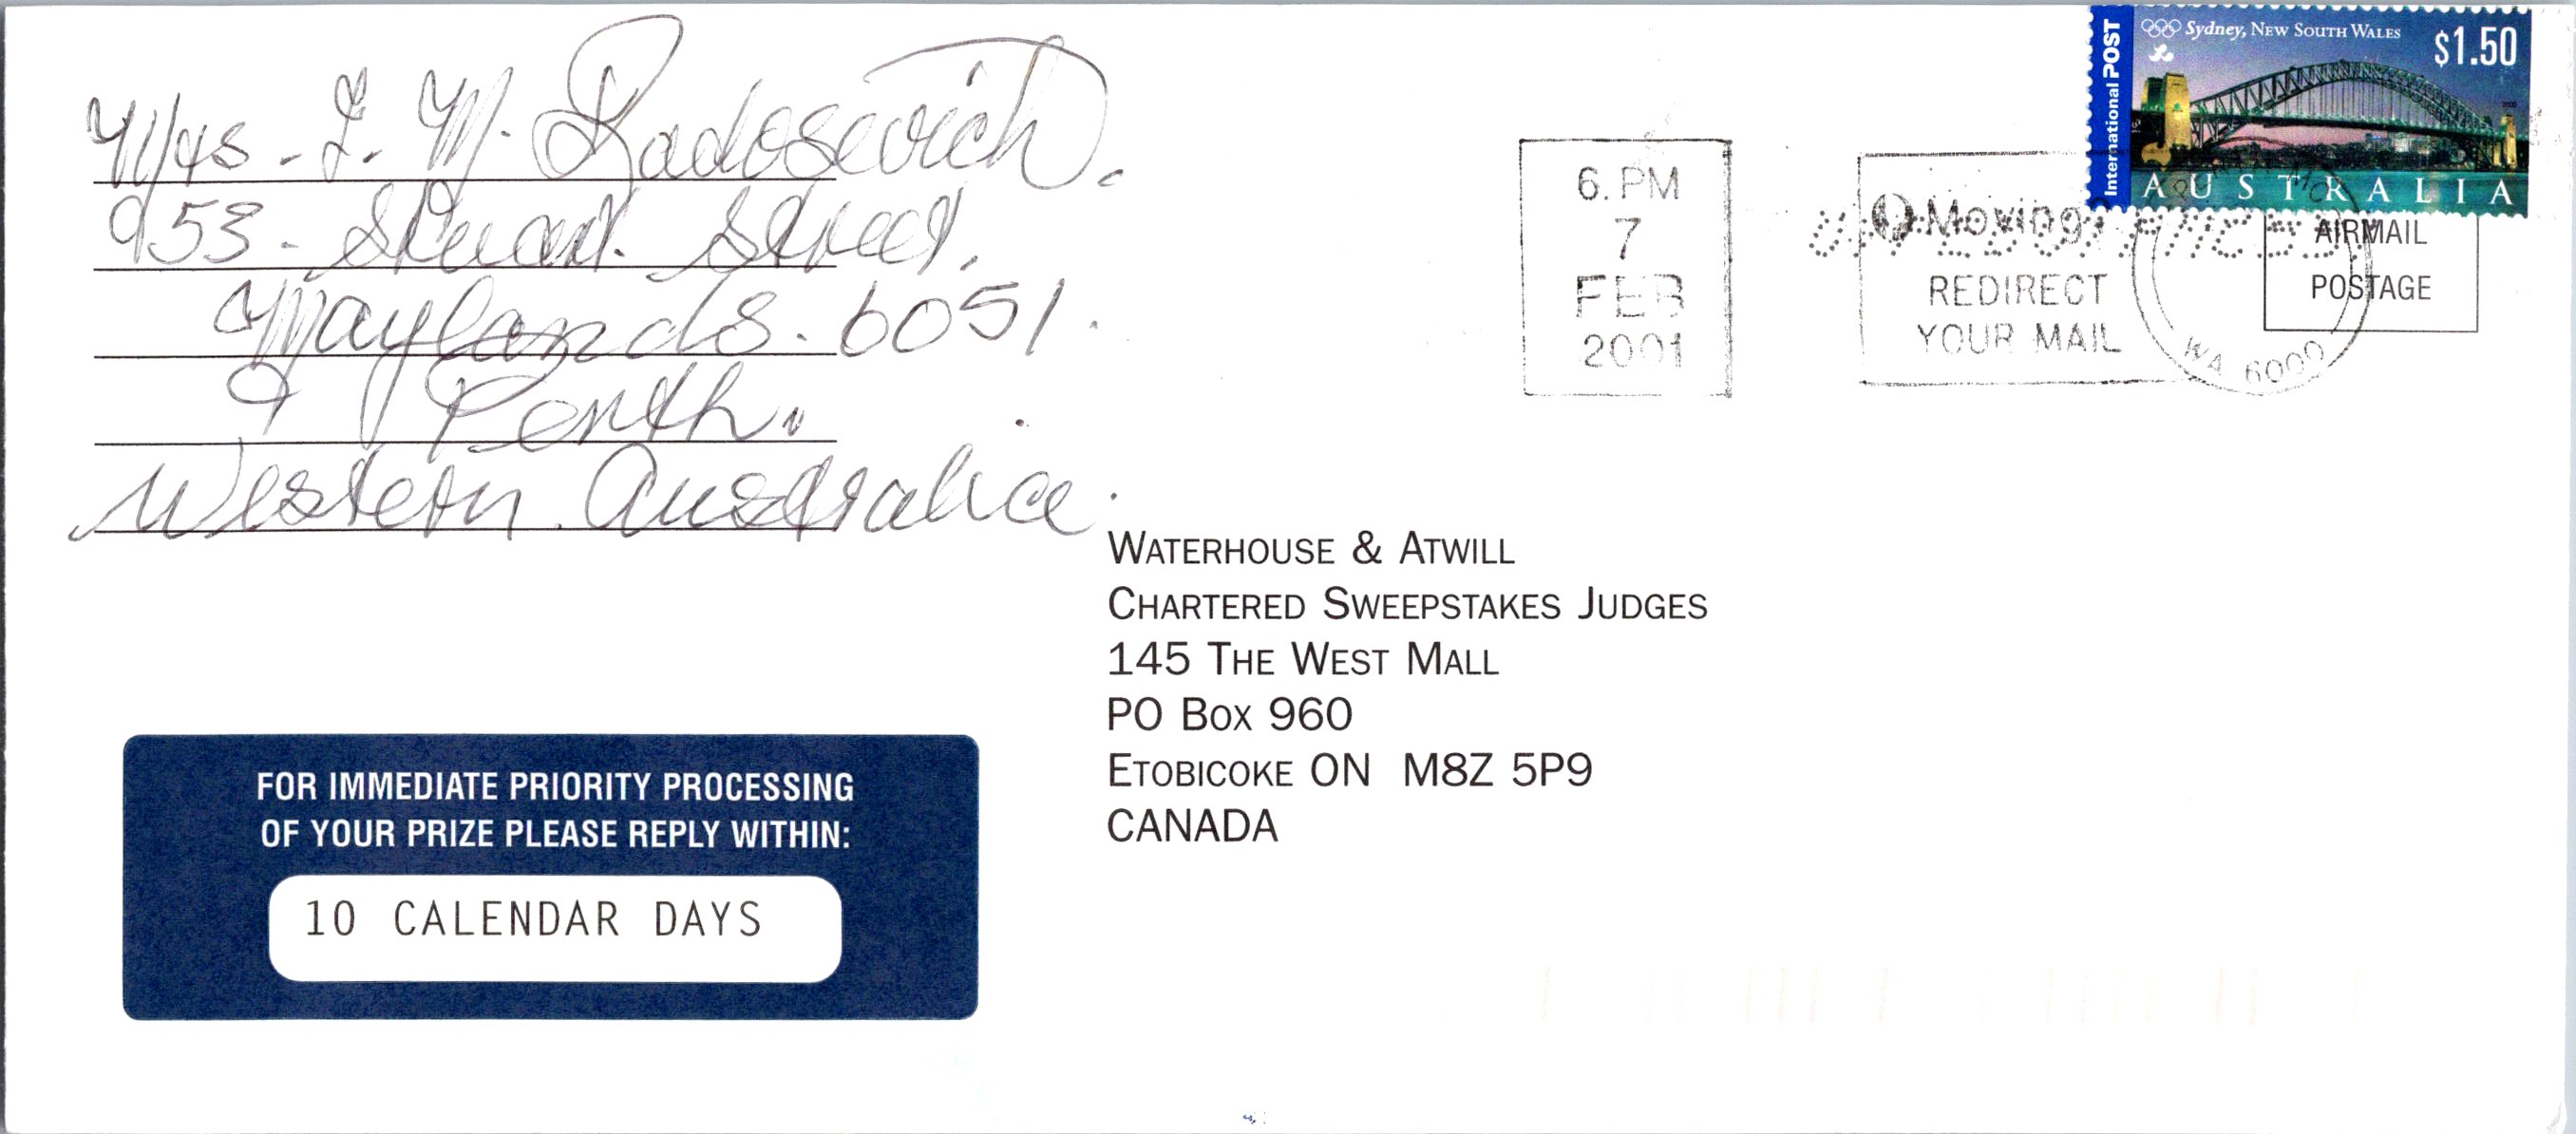 Mrs - I. M. Radosevich.
953 - Stuart Street,
Maylands. 6051.
Perth.
Western Australia.
International POST
Sydney, NEW SOUTH WALES
$1.50
AUSTRALIA
6. PM
7
FEB
2001
Moving?
REDIRECT
YOUR MAIL
WA 6000
AIRMAIL
POSTAGE
WATERHOUSE & ATWILL
CHARTERED SWEEPSTAKES JUDGES
145 THE WEST MALL
PO BOX 960
ETOBICOKE ON M8Z 5P9
CANADA
FOR IMMEDIATE PRIORITY PROCESSING
OF YOUR PRIZE PLEASE REPLY WITHIN:
10 CALENDAR DAYS